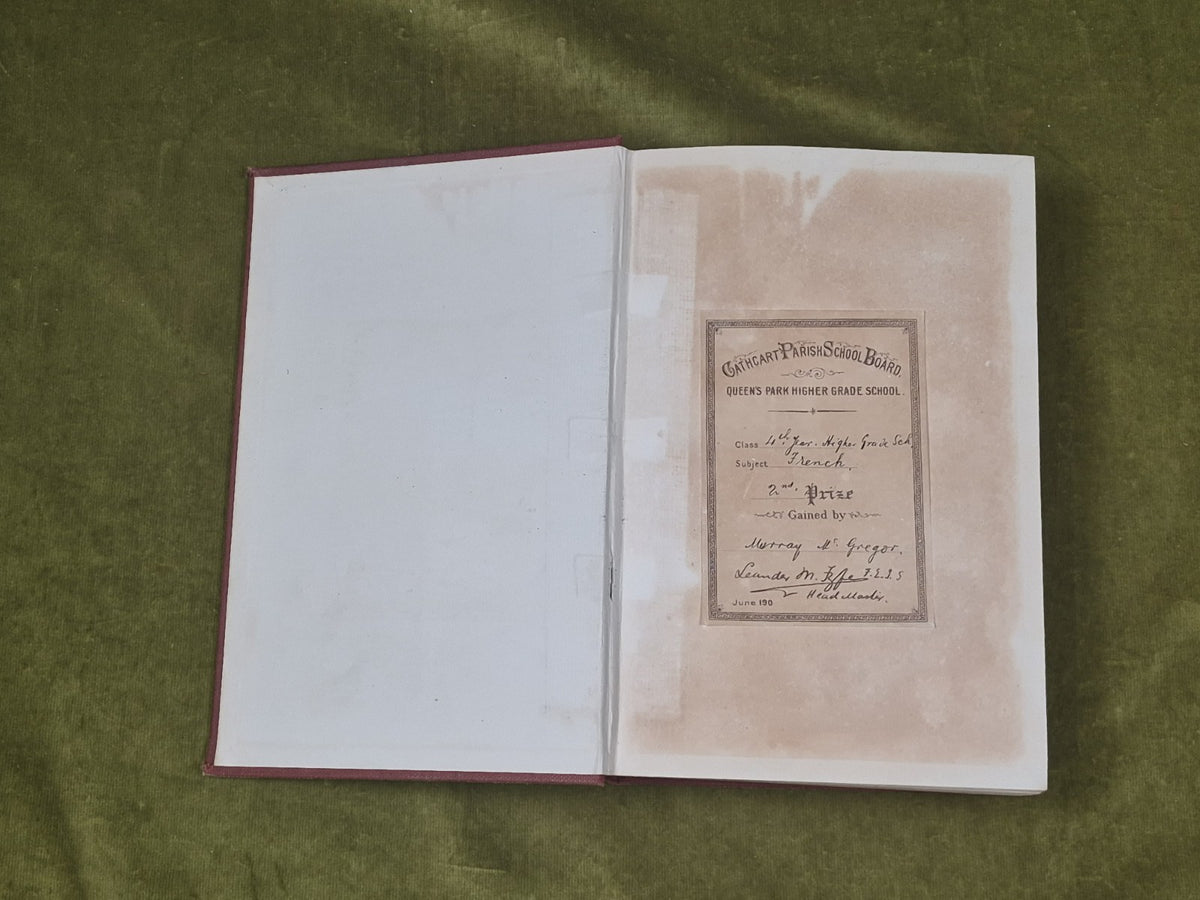 CATHCART PARISH SCHOOL BOARD.
QUEEN'S PARK HIGHER GRADE SCHOOL.
Class 4th Year. Higher Grade Sch.
Subject French.
2nd. Prize
Gained by
Murray Mc Gregor.
Leander M. Fyfe F.E.I.S
Head Master.
June 190